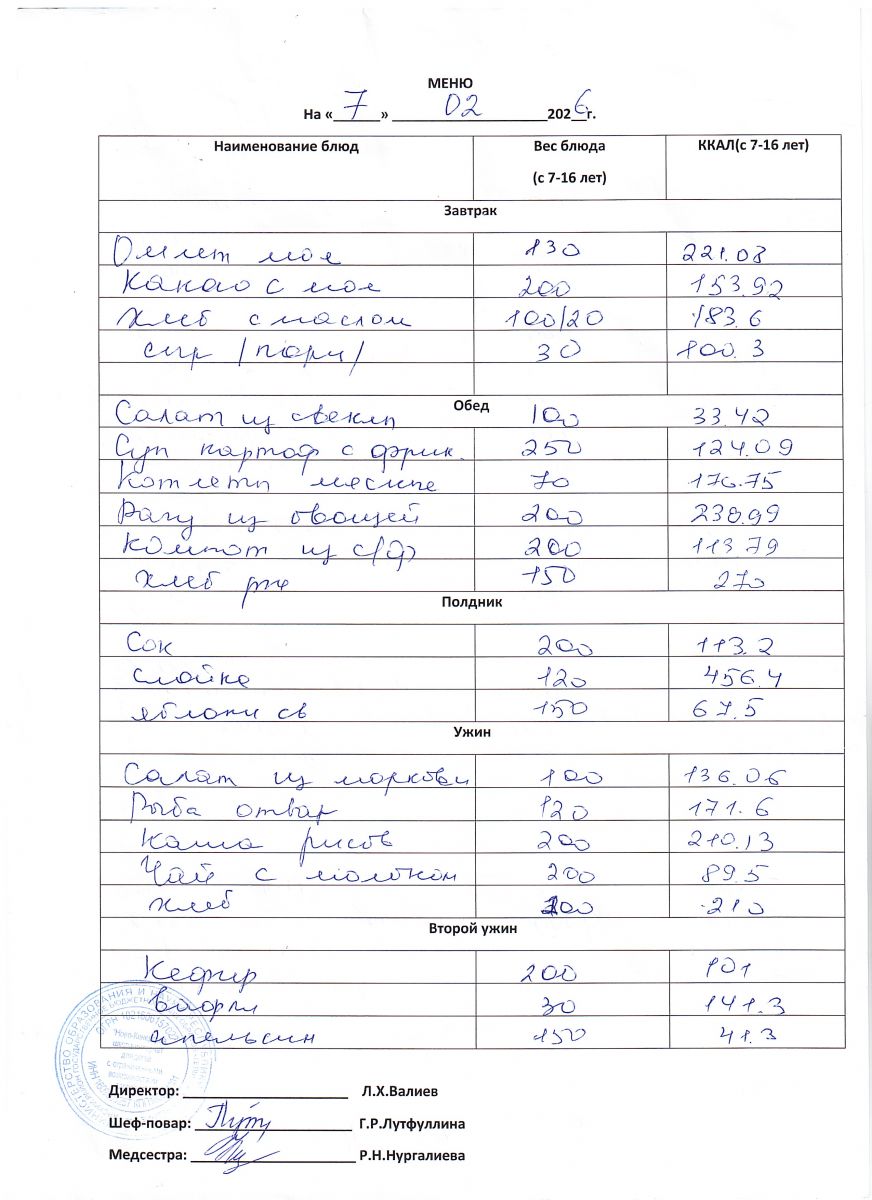 МЕНЮ
На « 7 » 02 2026 г.
Наименование блюд Вес блюда (с 7-16 лет) ККАЛ(с 7-16 лет)
Завтрак
Омлет мол 130 221.08
Какао с мол 200 153.92
Хлеб с маслом 100/20 183.6
сыр /порц/ 30 100.3
Обед
Салат из свеклы 100 33.42
Суп картоф с фрик. 250 124.09
Котлеты мясные 70 176.75
Рагу из овощей 200 238.99
Компот из с/ф 200 113.79
Хлеб рж 150 270
Полдник
Сок 200 113.2
слойка 120 456.4
яблоки св 150 67.5
Ужин
Салат из моркови 100 136.06
Рыба отвар 120 171.6
Каша рисов 200 210.13
Чай с молоком 200 89.5
хлеб 100 210
Второй ужин
Кефир 200 101
вафли 30 141.3
апельсин 150 41.3
Директор: Л.Х.Валиев
Шеф-повар: Г.Р.Лутфуллина
Медсестра: Р.Н.Нургалиева